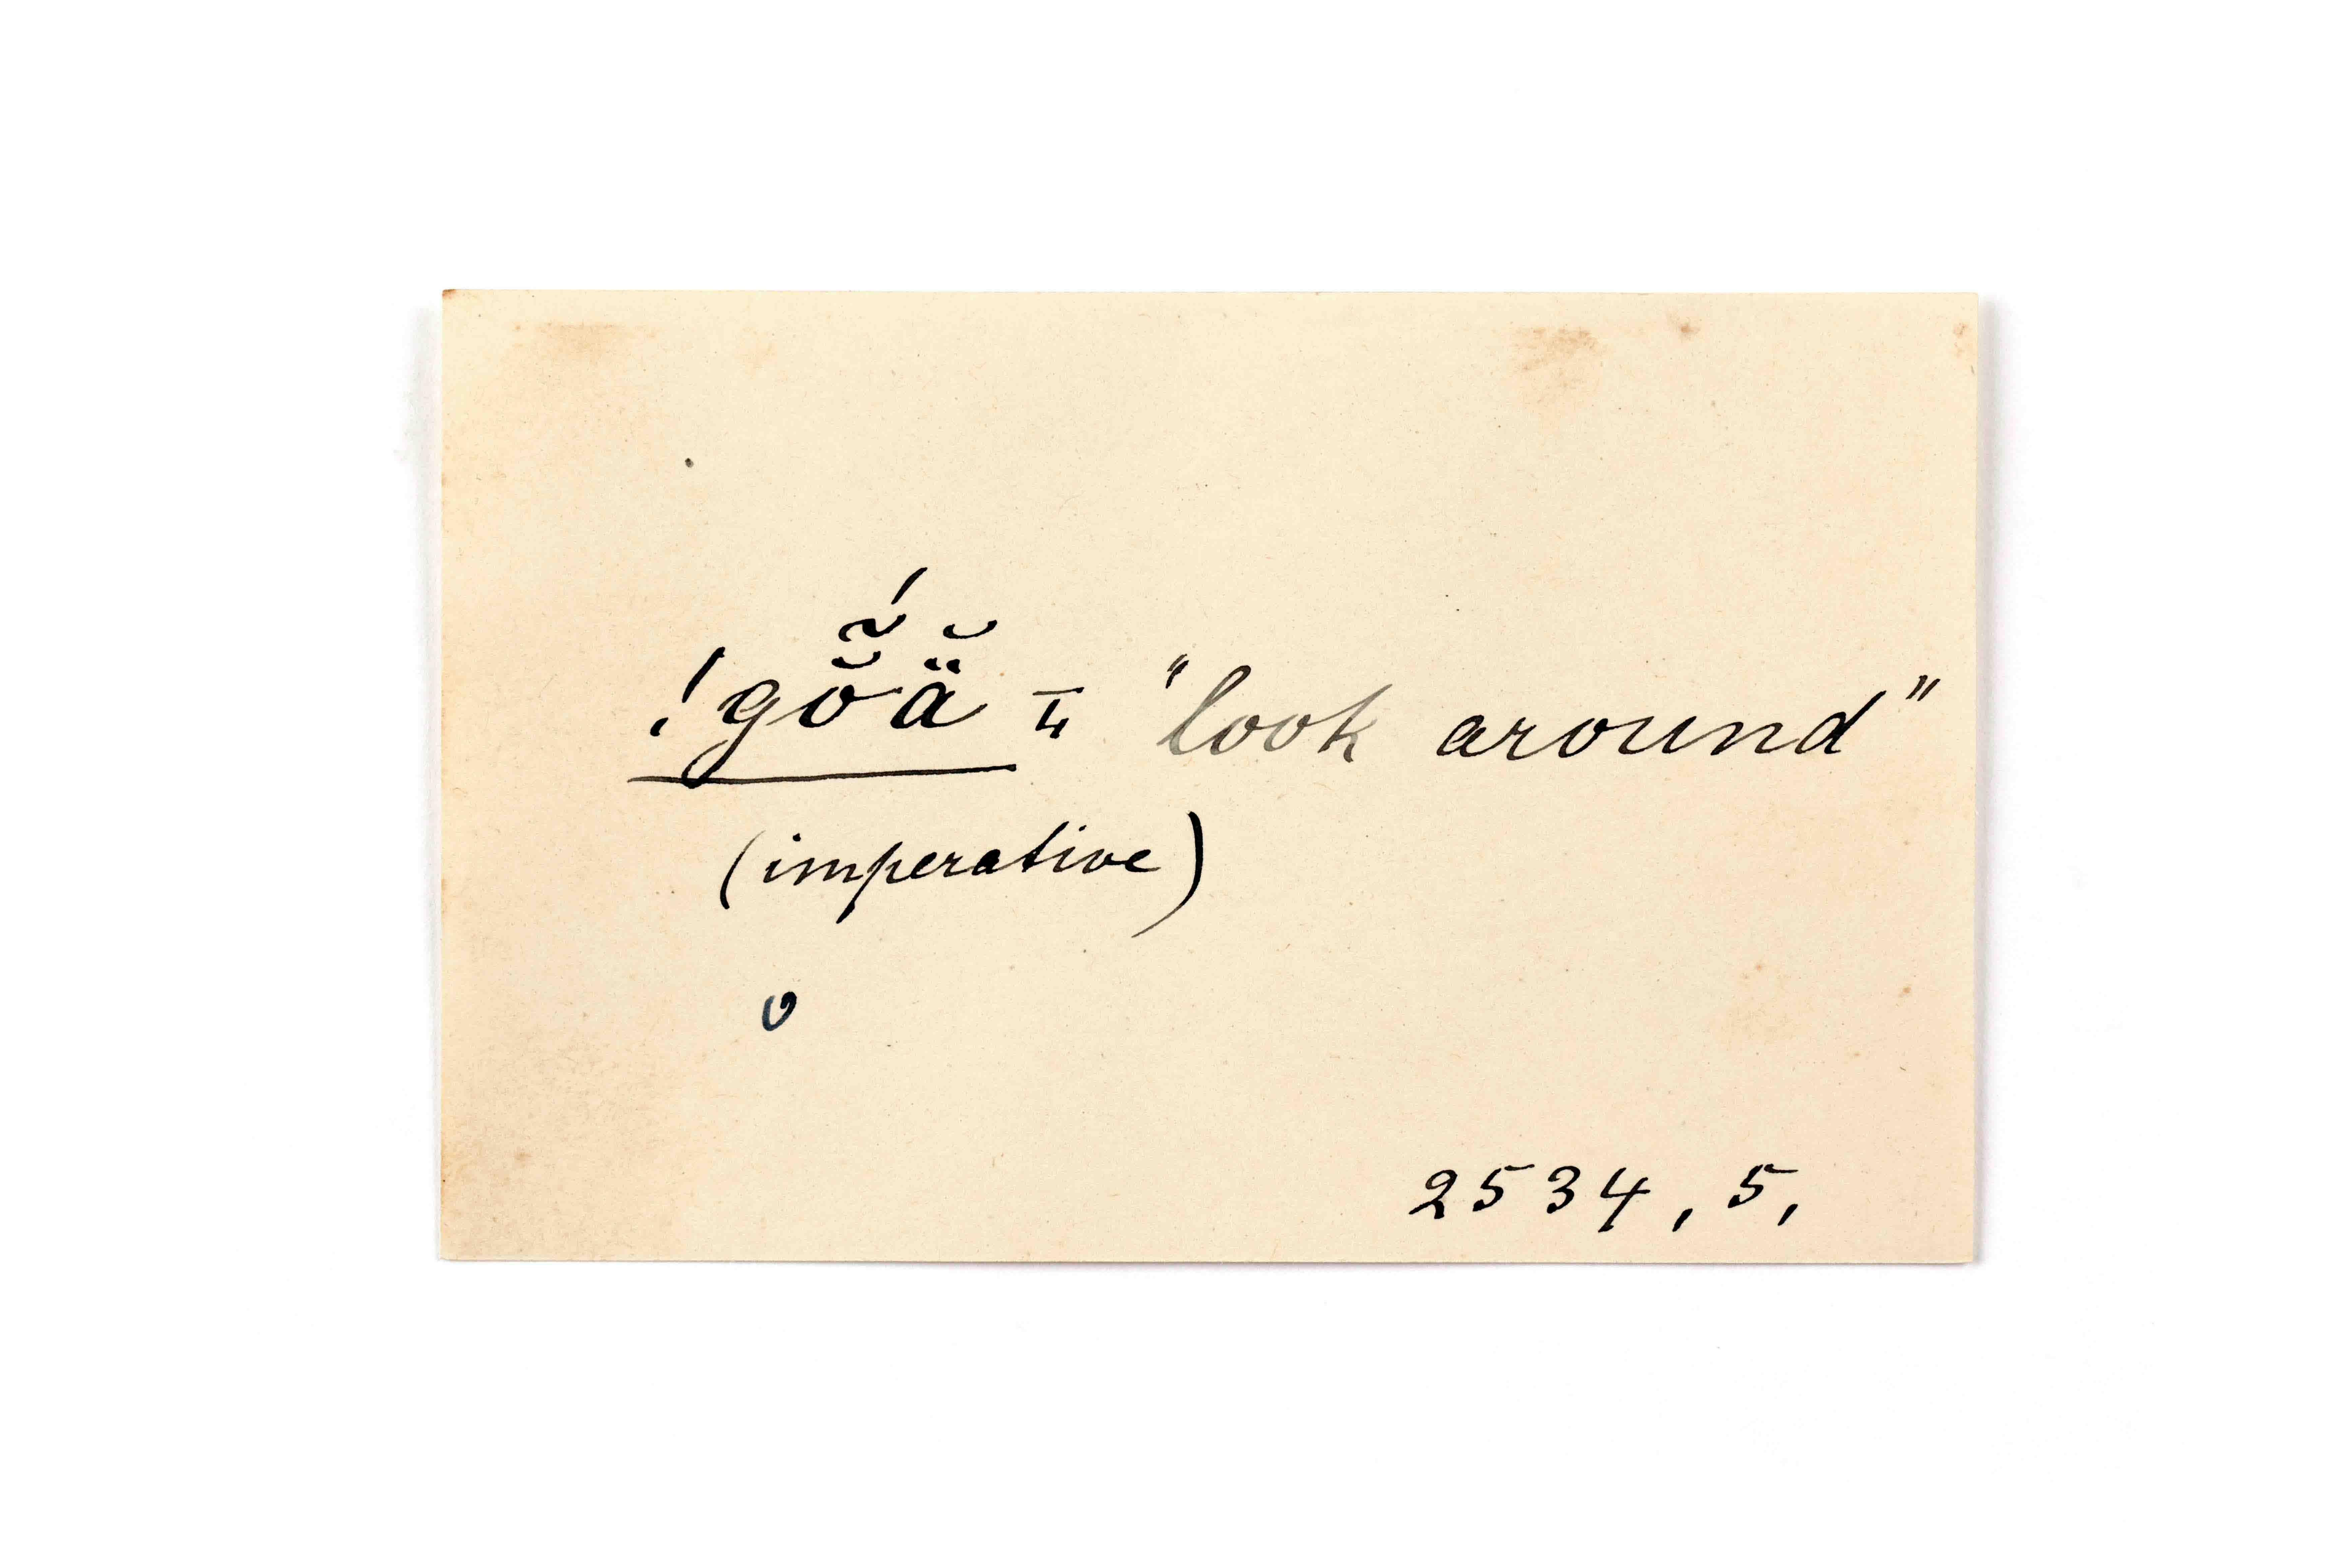 !gŏ̃́ä̆ = "look around"
(imperative)
o
2534, 5,